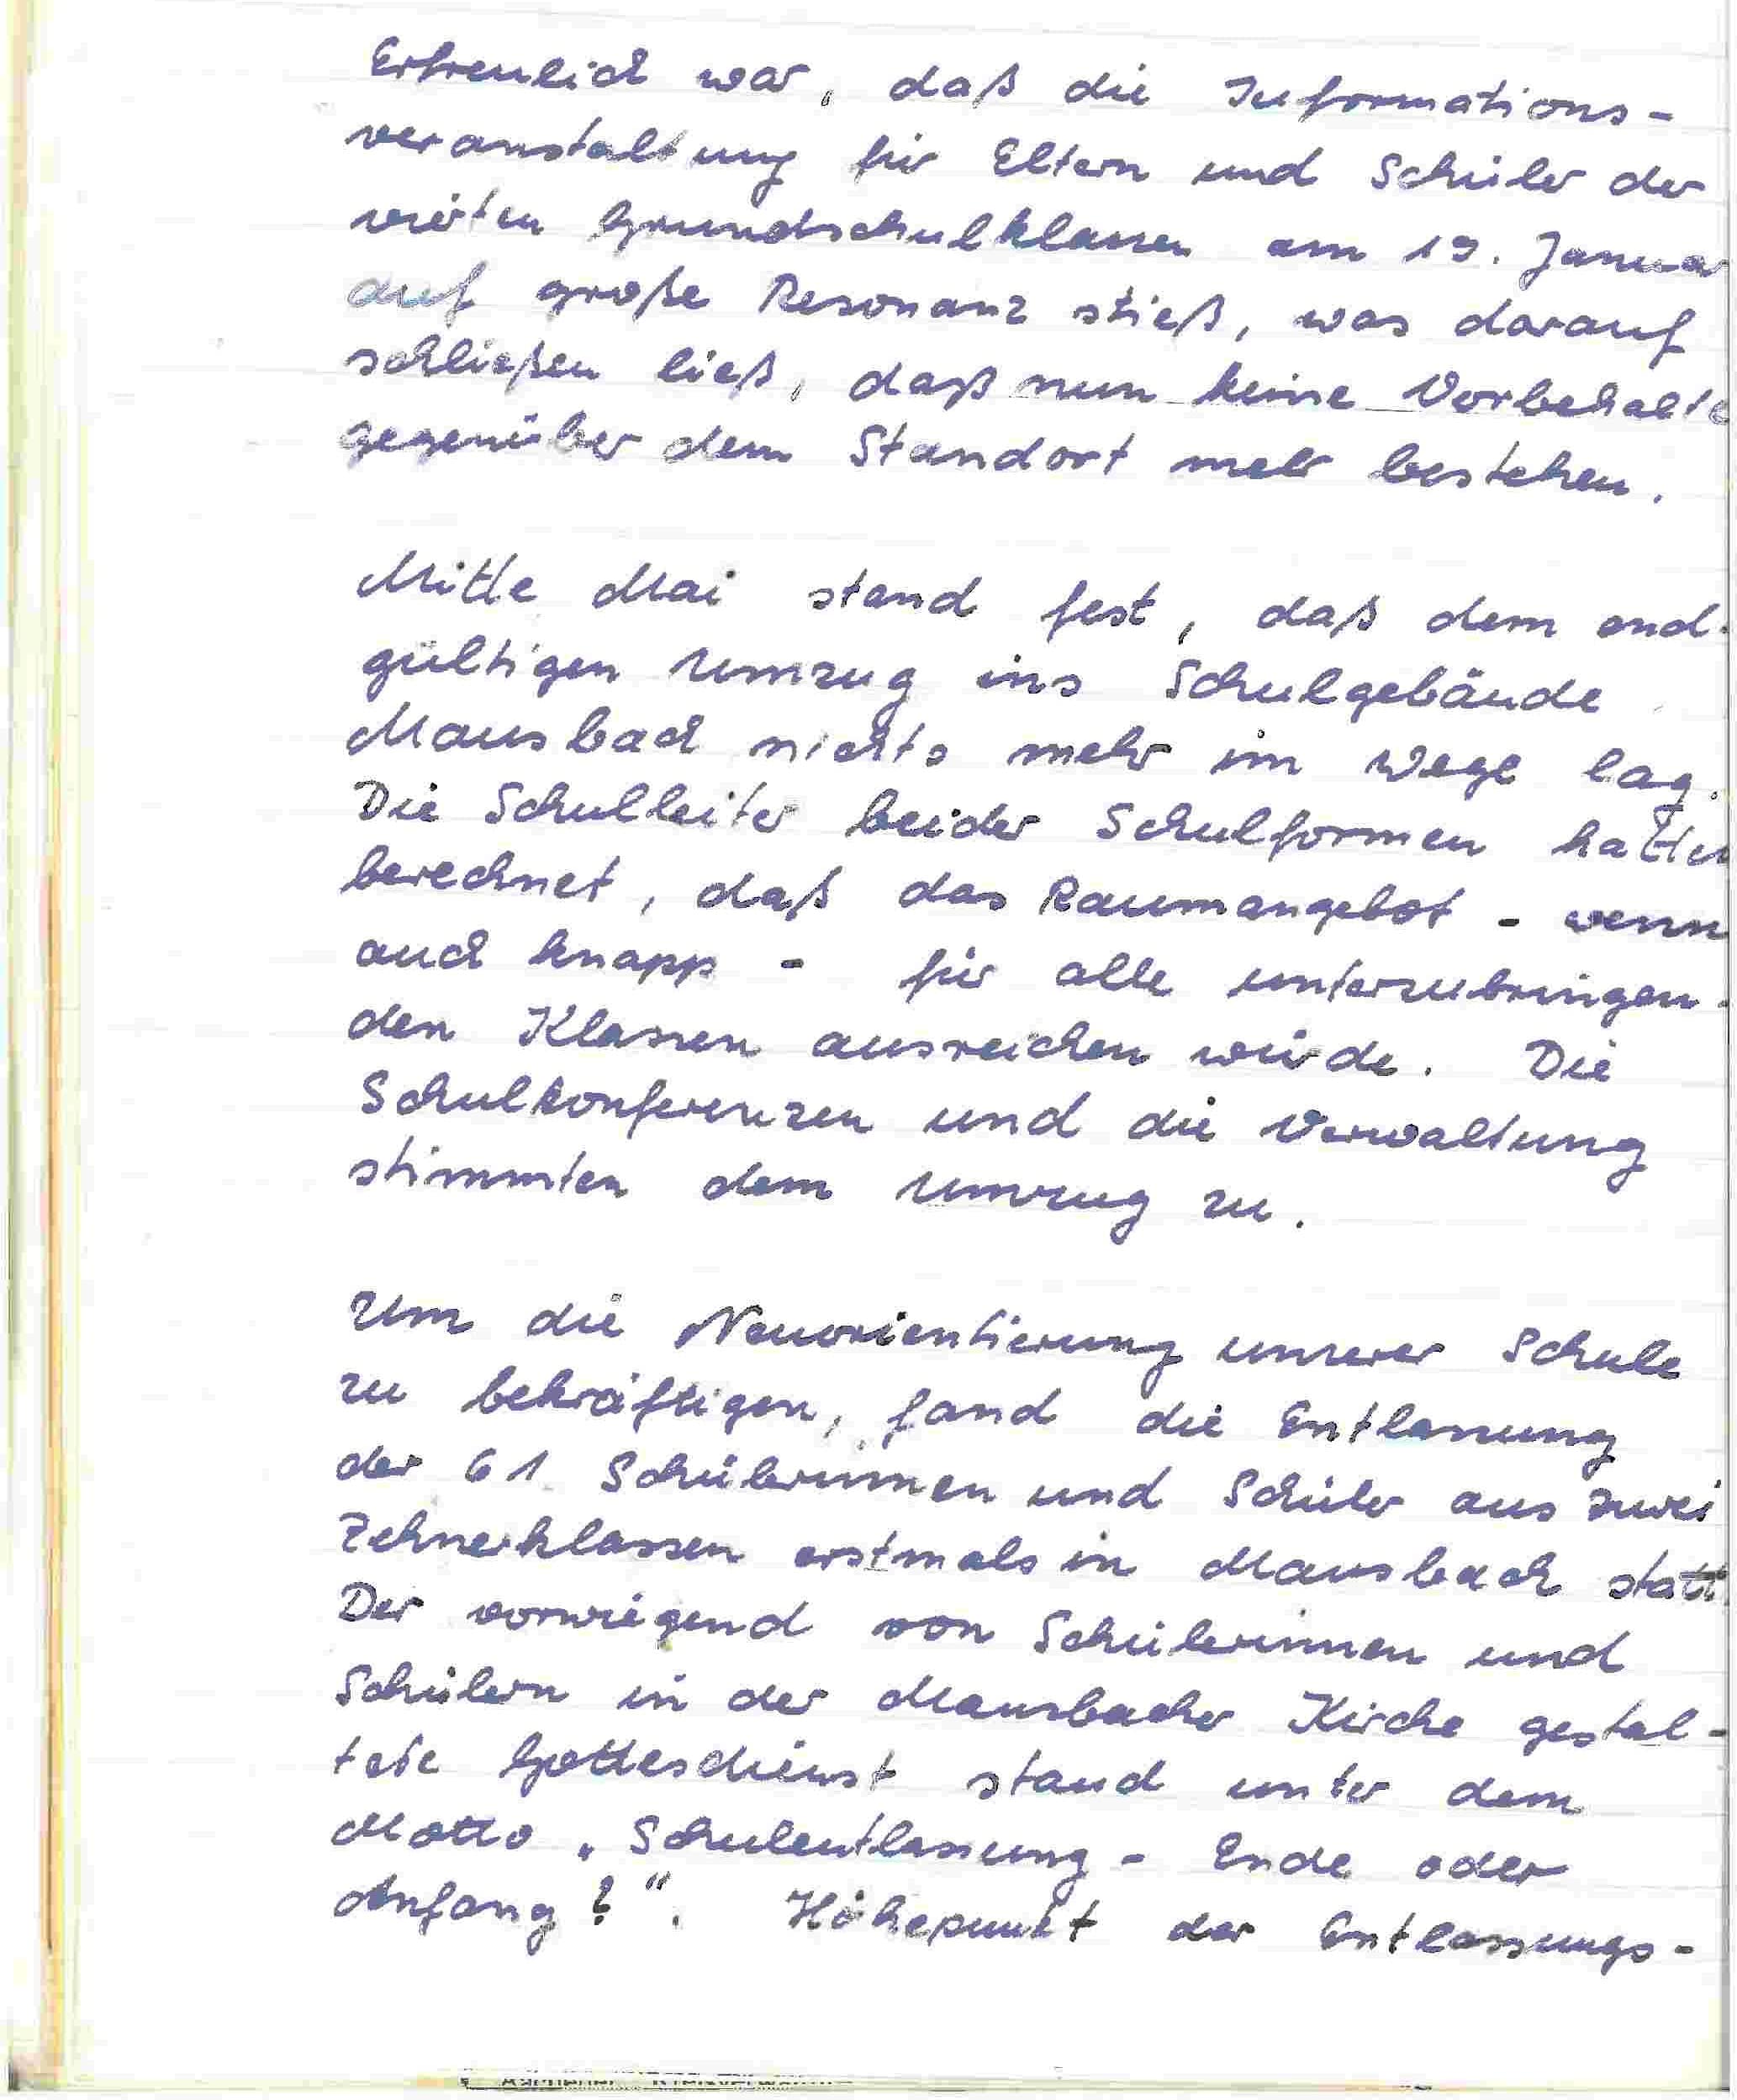 Erfreulich war, daß die Informations-
veranstaltung für Eltern und Schüler der
vierten Grundschulklassen am 19. Januar
auf große Resonanz stieß, was darauf
schließen ließ, daß nun keine Vorbehalte
gegenüber dem Standort mehr bestehen.
Mitte Mai stand fest, daß dem end-
gültigen Umzug ins Schulgebäude
Mausbach nichts mehr im Wege lag.
Die Schulleiter beider Schulformen hatten
berechnet, daß das Raumangebot - wenn
auch knapp - für alle unterzubringen-
den Klassen ausreichen würde. Die
Schulkonferenzen und die Verwaltung
stimmten dem Umzug zu.
Um die Neuorientierung unserer Schule
zu bekräftigen, fand die Entlassung
der 61 Schülerinnen und Schüler aus zwei
Zehnerklassen erstmals in Mausbach statt.
Der vorwiegend von Schülerinnen und
Schülern in der Mausbacher Kirche gestal-
tete Gottesdienst stand unter dem
Motto „Schulentlassung - Ende oder
Anfang?". Höhepunkt der Entlassungs-